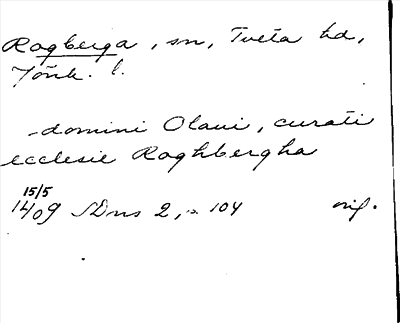 Rogberga, sn, Tveta hd,
Jönk. l.
-domini Olaui, curati
ecclesie Roghbergha
15/5
1409 SDns 2, s. 104 orig.